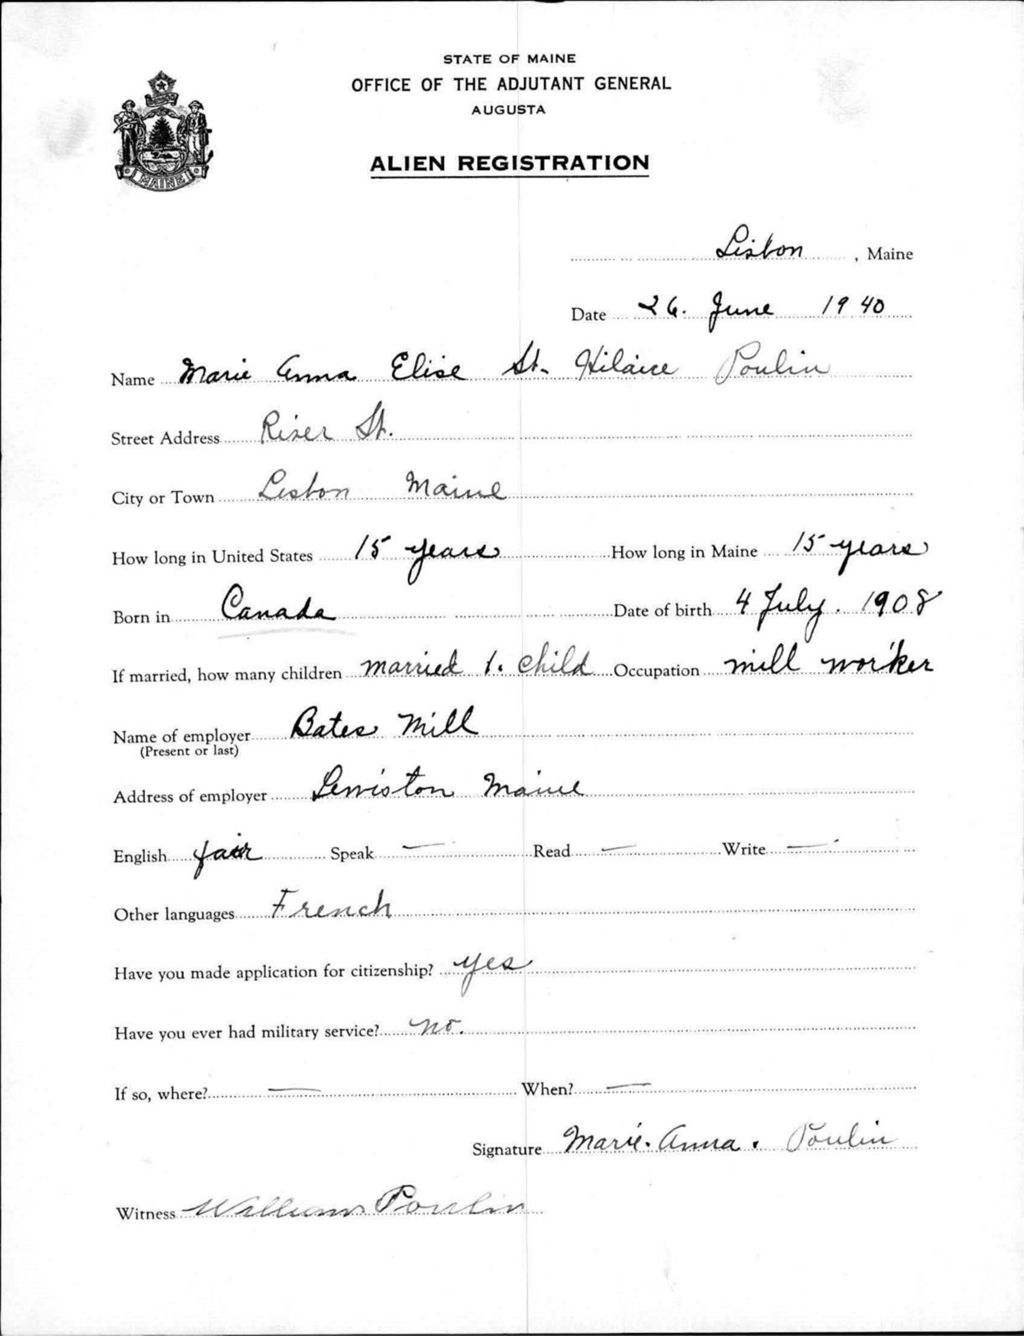 STATE OF MAINE
OFFICE OF THE ADJUTANT GENERAL
AUGUSTA
ALIEN REGISTRATION
MAINE
Lisbon, Maine
Date 26. June 1940
Name Marie Anna Elise St. Hilaire Poulin
Street Address River St.
City or Town Lisbon Maine
How long in United States 15 years How long in Maine 15 years
Born in Canada Date of birth 4 July. 1908
If married, how many children married 1. child Occupation mill worker
Name of employer Bates Mill
(Present or last)
Address of employer Lewiston Maine
English fair Speak — Read — Write —
Other languages French
Have you made application for citizenship? yes
Have you ever had military service? no.
If so, where? — When? —
Signature Marie. Anna. Poulin
Witness William Poulin